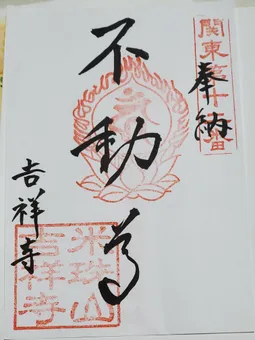 奉納
不動尊
吉祥寺
米珠山
吉祥寺